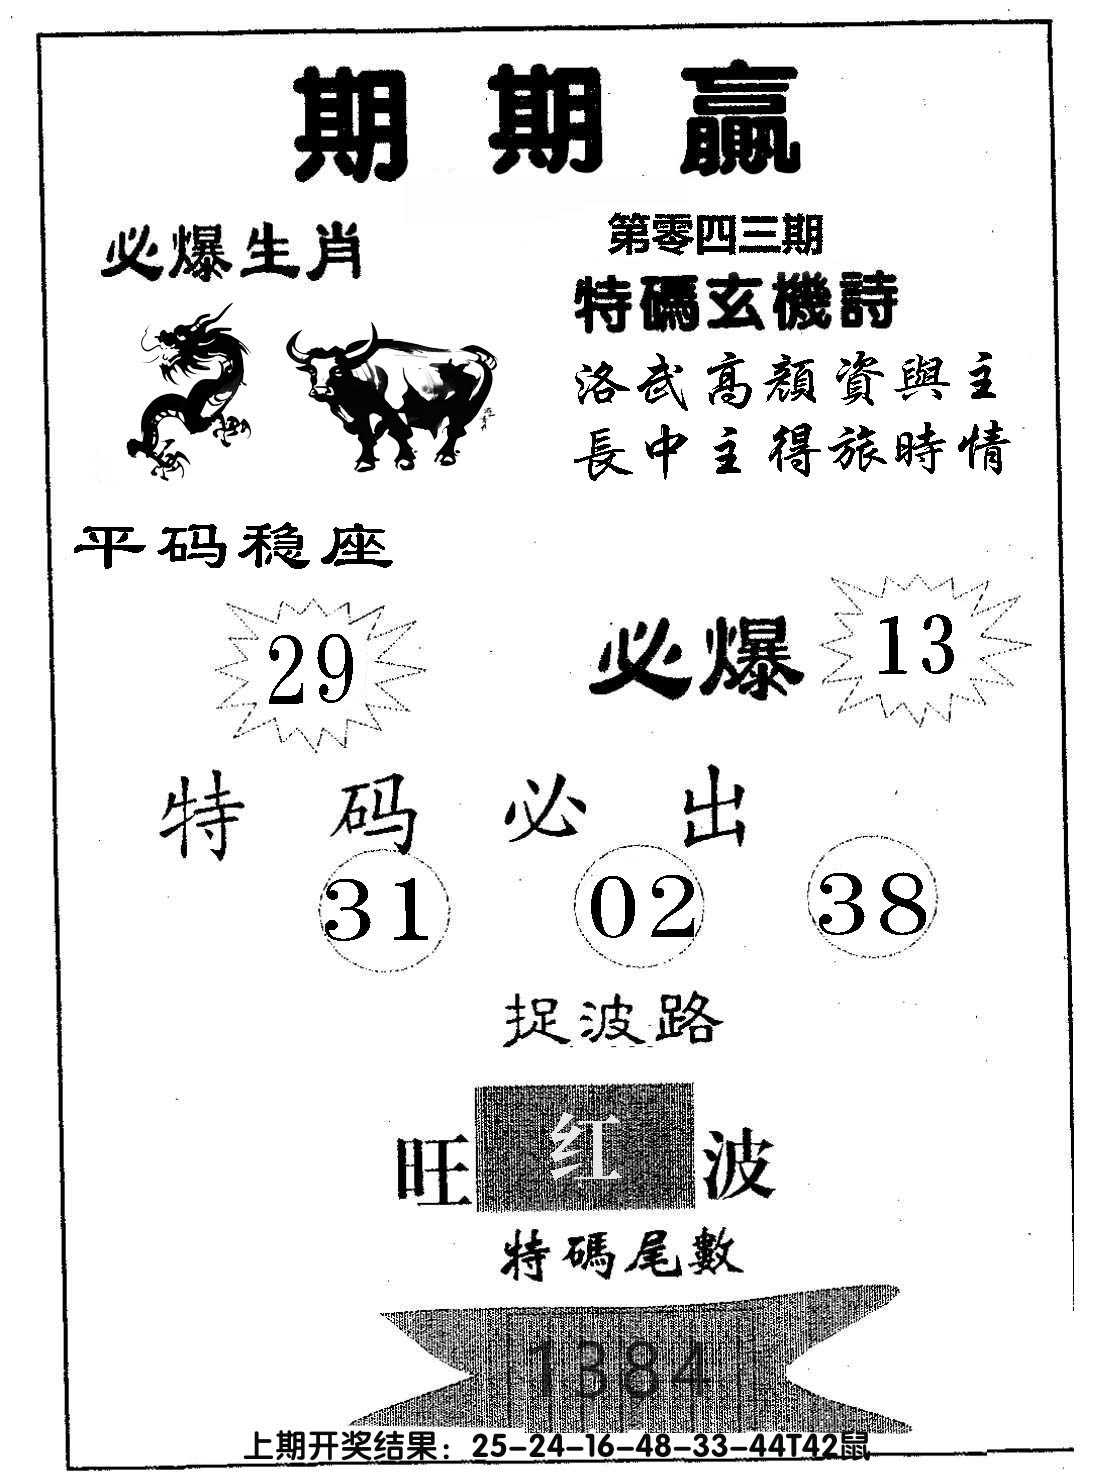 期期赢
必爆生肖
第零四三期
特碼玄機詩
洛武高顔資與主
長中主得旅時情
平码稳座
29
必爆 13
特码必出
31 02 38
捉波路
旺 红 波
特碼尾數
1384
上期开奖结果：25-24-16-48-33-44T42鼠